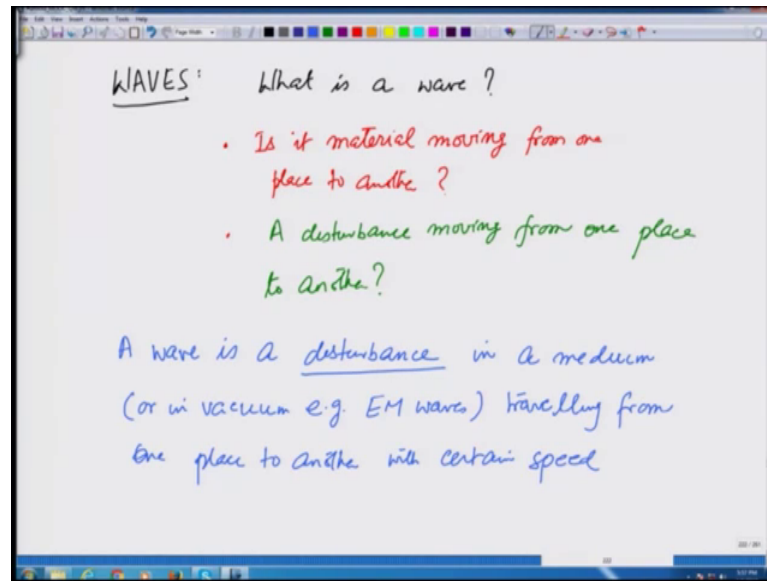 File Edit View Insert Actions Tools Help
Page Width
WAVES: What is a wave?
• Is it material moving from one
place to anothe ?
• A disturbance moving from one place
to anothe?
A wave is a disturbance in a medium
(or in vacuum e.g. EM waves) travelling from
one place to anothe with certain speed